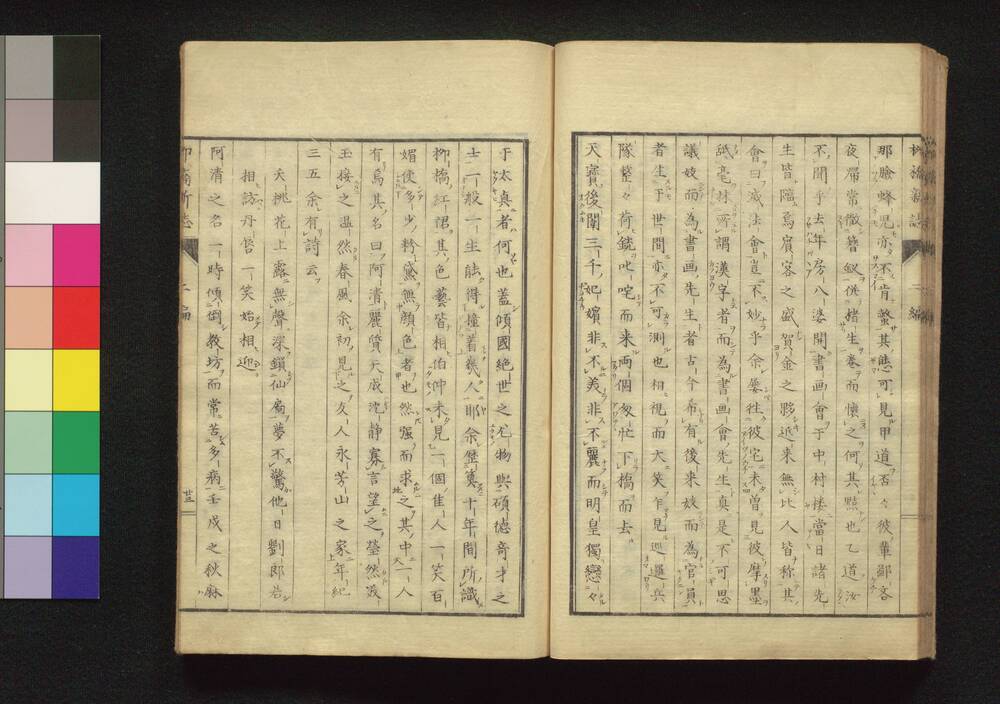 柳橋新誌 二編
那臉蜂児亦不肯螫其態可見甲道否々彼輩鄙吝
夜屑常徴簪釵供楮生巻而懐之何其黠也乙道汝
不聞乎去年房八婆開書画會于中村楼當日諸先
生皆臨焉賓客之盛賀金之夥近来無比人皆称其
會曰滅法會豈不妙乎余屡往彼宅未曽見彼摩墨
舐毫抹所謂漢字者而為書画會先生真是不可思
議妓而為書画先生者古今希有後来妓而為官員
者生于世間亦不可測也相視而大笑乍見巡邏兵
隊鰲々荷銃叱咤而来両個匆忙下橋而去
天寳後閣三千妃嬪非不美非不麗而明皇獨戀々
于太真者何也蓋傾國絶世之尤物與碩徳奇才之
士一般一生能得撞着幾人耶余歴算十年間所識
柳橋紅裙其色藝皆相伯仲未見一個佳人一笑百
媚使多少粉黛無顔色者也然强而求之其中一人
有焉其名曰阿清麗質天成沈静寡言望之瑩然潔
玉接之温然春風余初見之友人永芳山之家年紀
三五余有詩云
夭桃花上露無聲深鎖仙扃夢不驚他日劉郎若
相訪丹唇一笑始相迎
阿清之名一時傾倒教坊而常苦多病壬戌之秋麻
柳橋新誌 二編 廿三